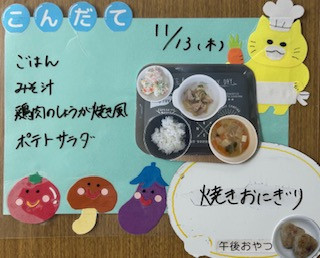 こんだて
11/13(木)
ごはん
みそ汁
鶏肉のしょうが焼き風
ポテトサラダ
焼きおにぎり
午後おやつ